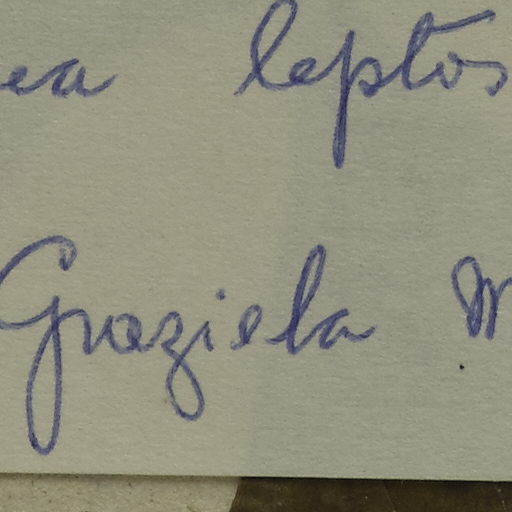 ea leptos
Graziela M